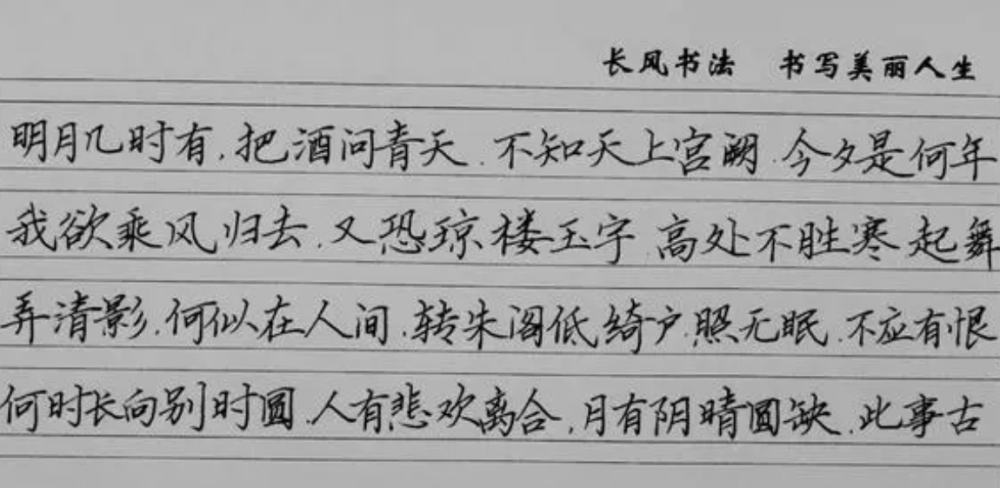 长风书法 书写美丽人生
明月几时有,把酒问青天.不知天上宫阙.今夕是何年
我欲乘风归去.又恐琼楼玉宇 高处不胜寒 起舞
弄清影.何似在人间.转朱阁低绮户.照无眠.不应有恨
何时长向别时圆.人有悲欢离合,月有阴晴圆缺.此事古